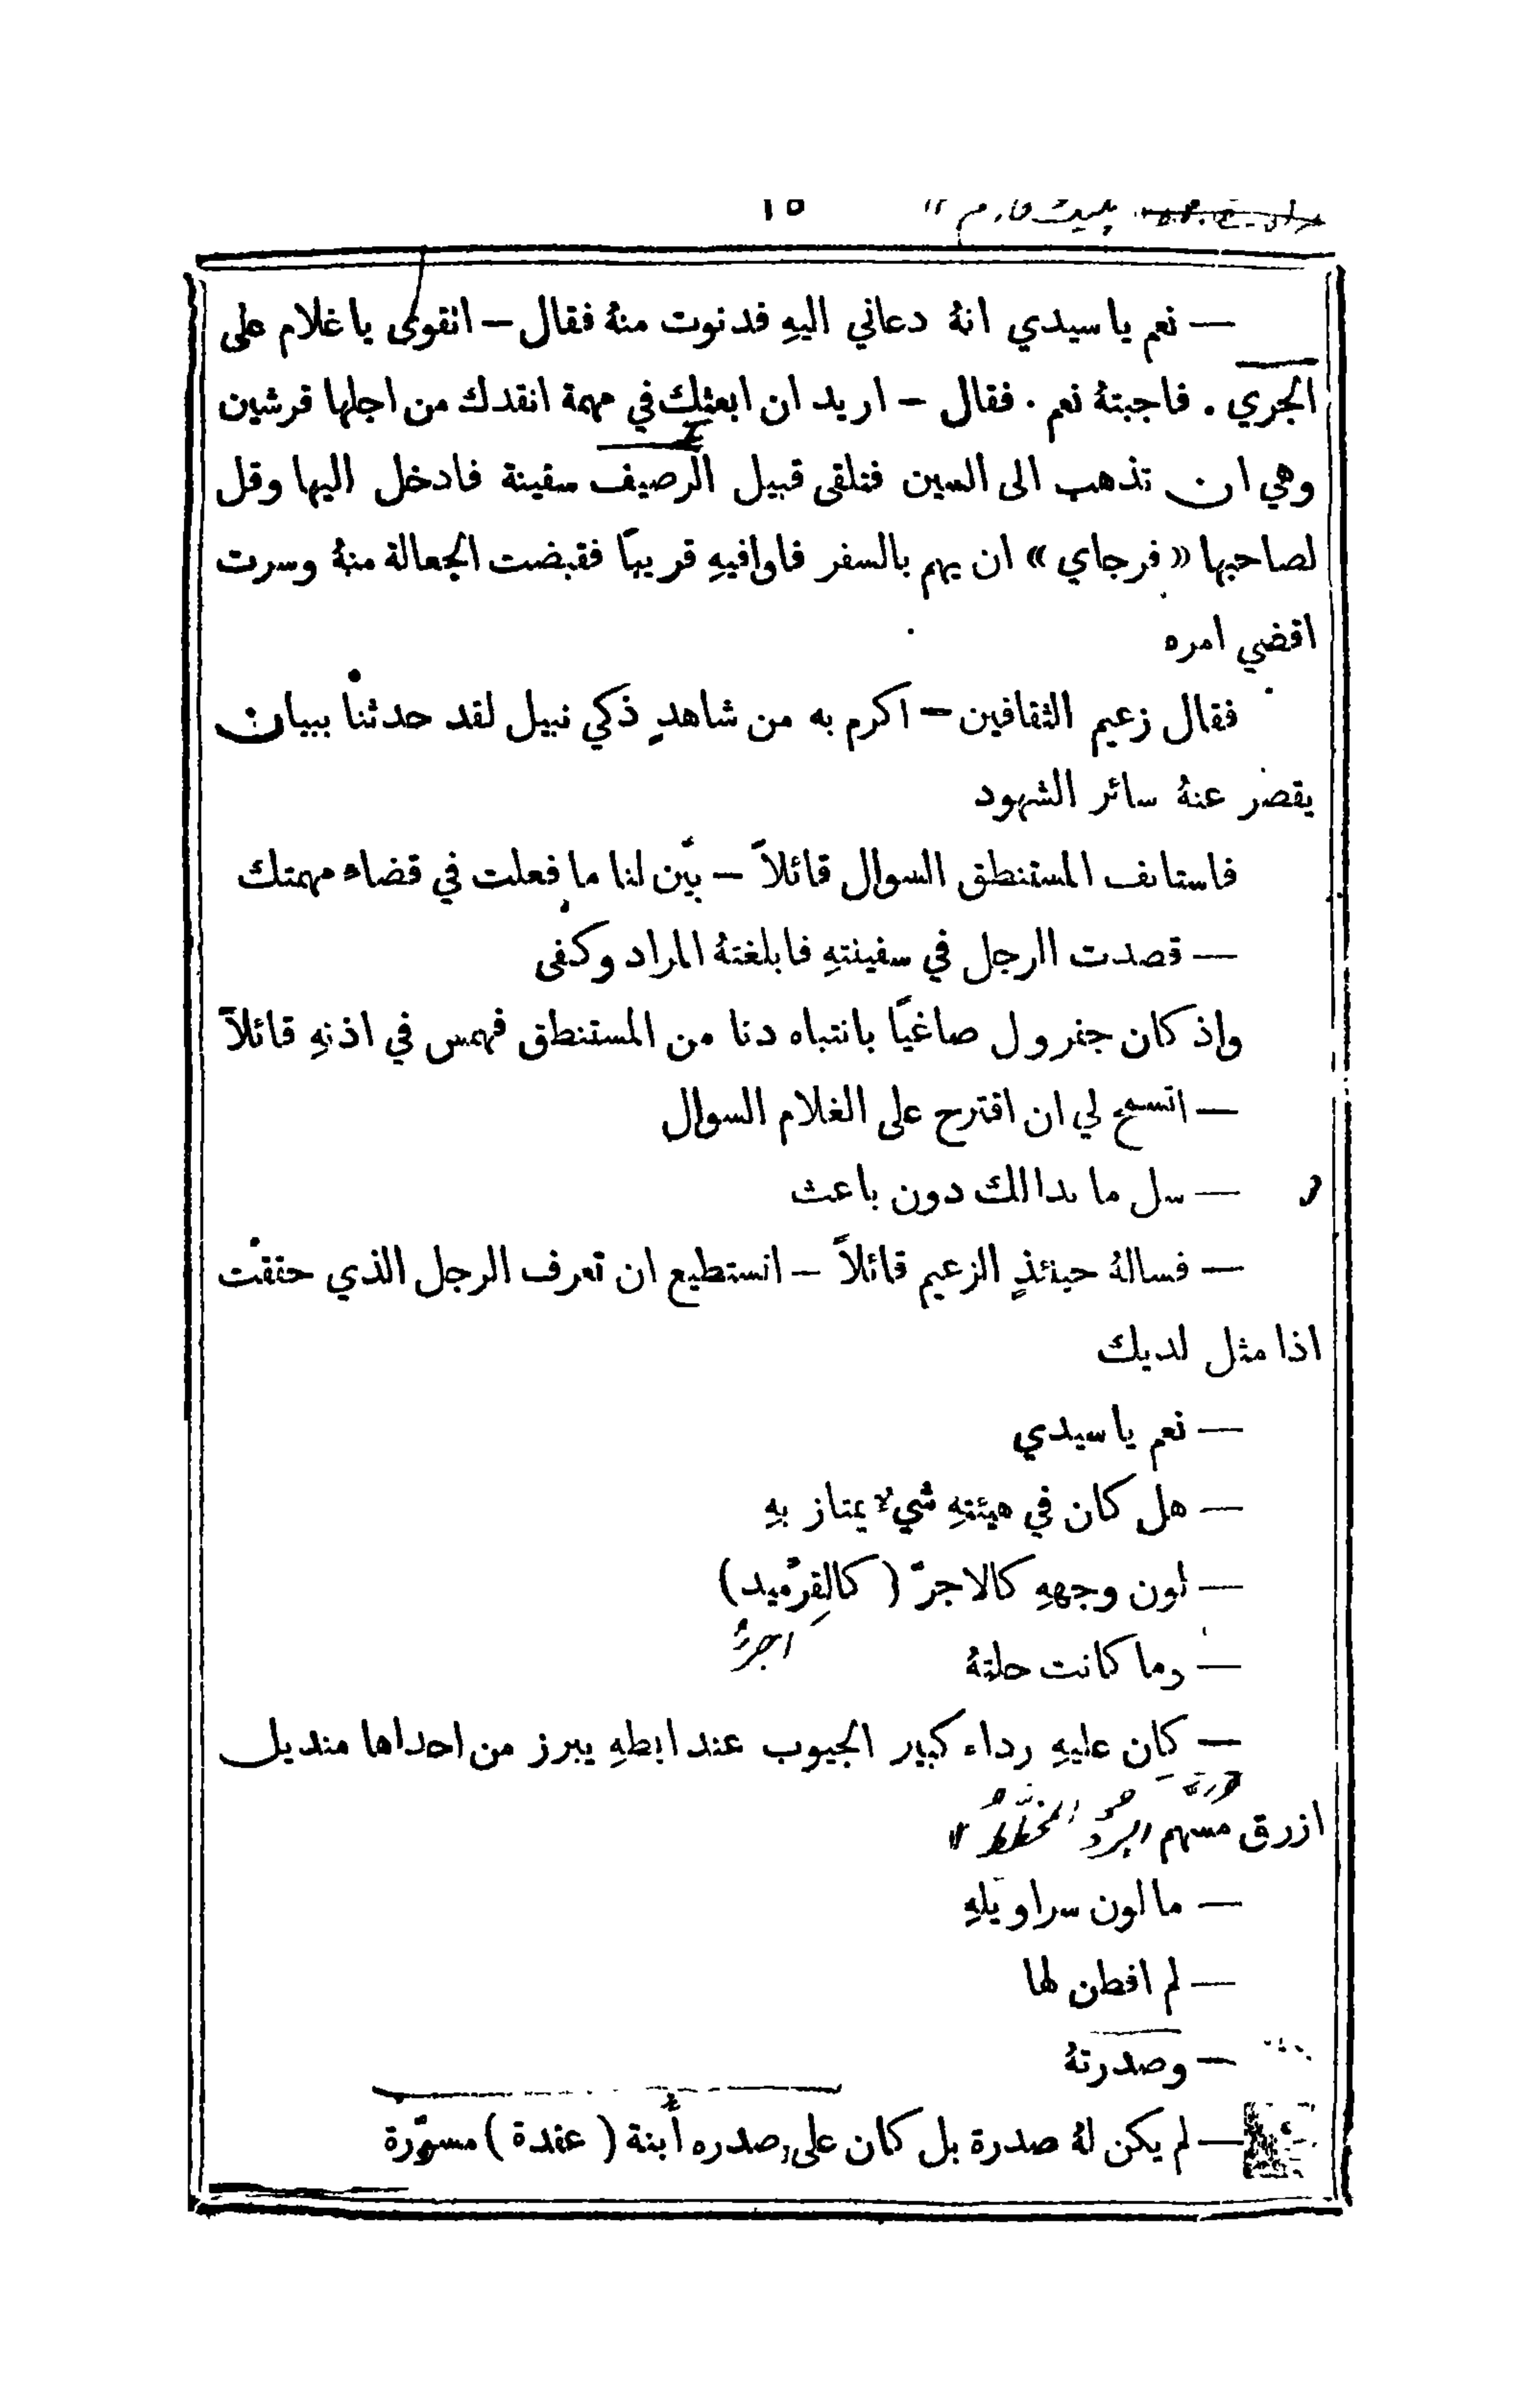 ١٥
— نعم يا سيدي انهُ دعاني اليهِ فدنوت منهُ فقال — اتقوى يا غلام على
الجري . فاجبتهُ نعم . فقال — اريد ان ابعثك في مهمة انقدك من اجلها قرشين
وهي ان تذهب الى السين فتلقى قبيل الرصيف سفينة فادخل اليها وقل
لصاحبها « فرجاي » ان يهم بالسفر فاوافيهِ قريبًا فقبضت الجعالة منهُ وسرت
اقضي امره
فقال زعيم الثقافين — اكرم به من شاهدٍ ذكي نبيل لقد حدثنا ببيان
يقصر عنهُ سائر الشهود
فاستانف المستنطق السوال قائلاً — بيّن لنا ما فعلت في قضاء مهمتك
— قصدت الرجل في سفينتهِ فابلغتهُ المراد وكفى
واذ كان جفرول صاغيًا بانتباه دنا من المستنطق فهمس في اذنهِ قائلاً
— اتسمح لي ان اقترح على الغلام السوال
— سل ما بدا لك دون باعث
— فسالهُ حينئذٍ الزعيم قائلاً — اتستطيع ان تعرف الرجل الذي حققت
اذا مثل لديك
— نعم يا سيدي
— هل كان في هيئتهِ شيء يمتاز بهِ
— لون وجههِ كالاجرّ ( كالقِرْميد )
— وما كانت حلتهُ
— كان عليهِ رداء كبير الجيوب عند ابطهِ يبرز من احداها منديل
ازرق مسهم البُرْدُ المخطَّطُ "
— ما لون سراويلهِ
— لم افطن لها
— وصدرتهُ
— لم يكن لهُ صدرة بل كان على صدره أُبنة ( عقدة ) مسمّرة